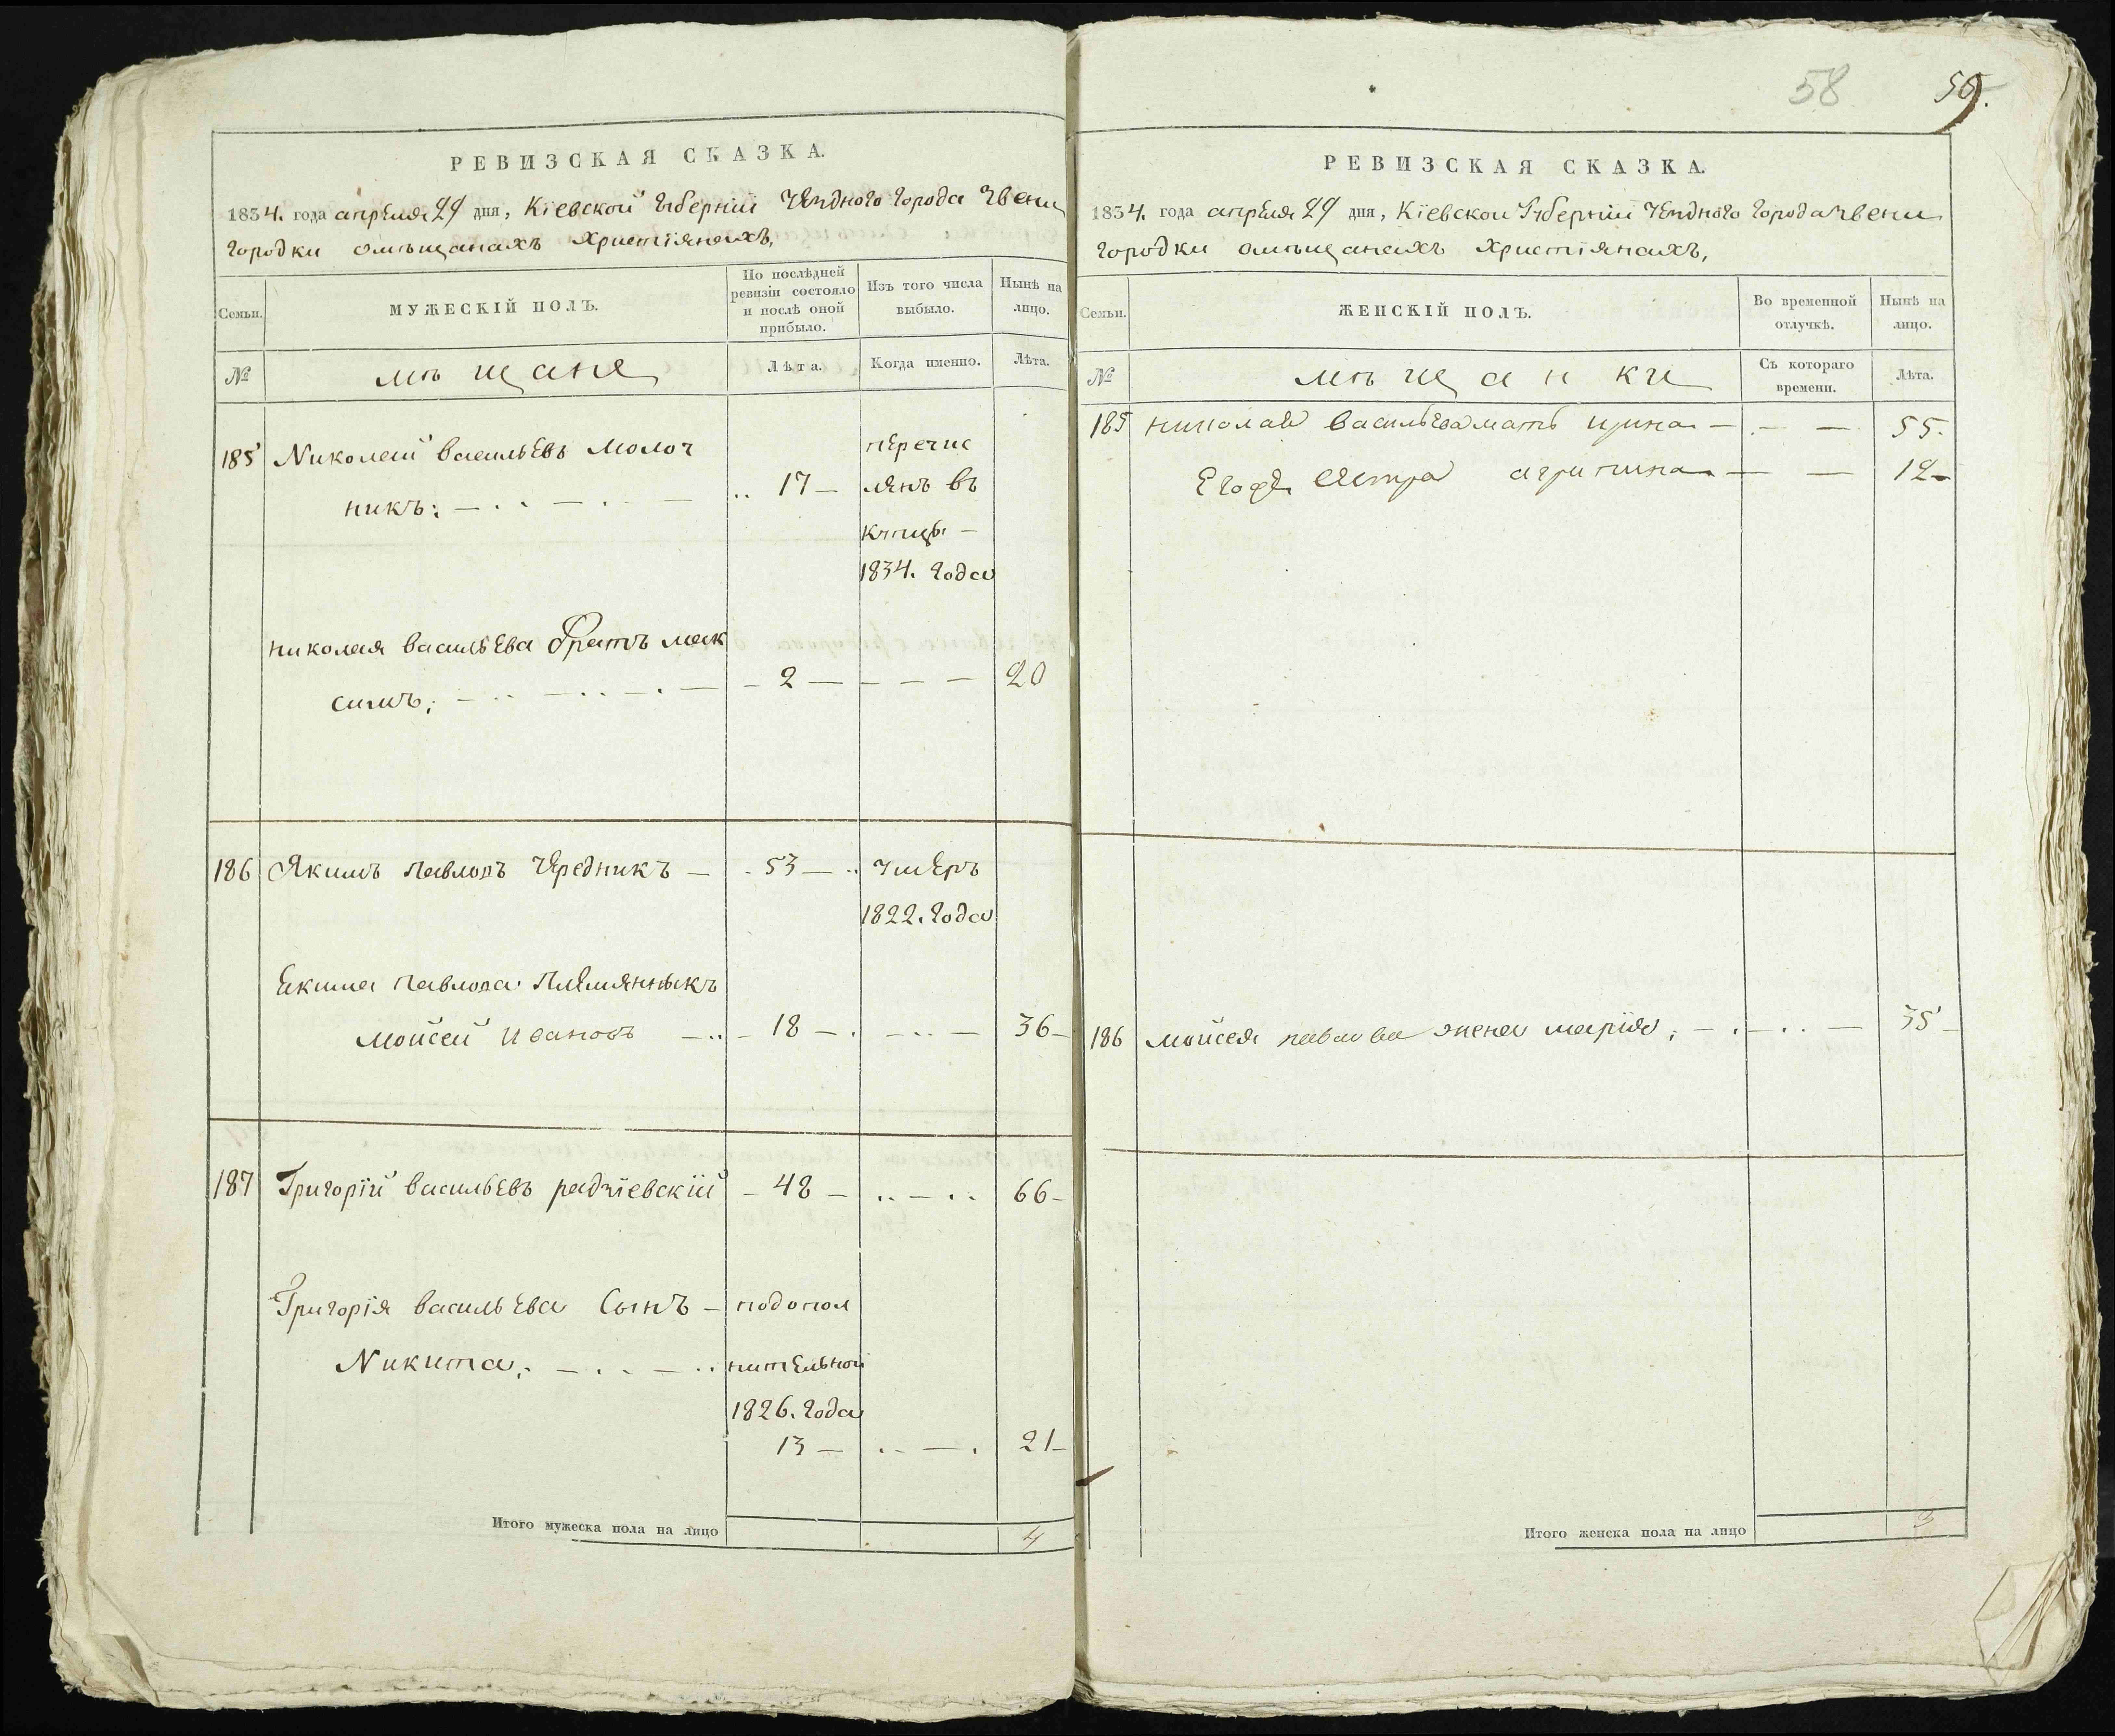 РЕВИЗСКАЯ СКАЗКА.
1834. года апреля 29 дня, Кіевской Губерніи Уездного города Звени
городки омѣщанахъ христіянахъ,
Семьи.
МУЖЕСКІЙ ПОЛЪ.
По послѣдней ревизіи состояло и послѣ оной прибыло.
Изъ того числа выбыло.
Нынѣ на лицо.
№
мѣщане
Лѣта.
Когда именно.
Лѣта.
185 Николай васильевъ Молоч
никъ: 17 перечис
лянъ въ
купцы
1834. года
николая васильева братъ мак
симъ; 2 20
186 Якимъ павловъ Чередникъ 53 умеръ
1822. года
Екима павлова племянныкъ
мойсей ивановъ 18 36
187 Григорій васильевъ радзіевскій 48 66
Григорія васильева Сынъ подопол
Никита; нительной
1826. года
13 21
Итого мужеска пола на лицо 4
58 59.
РЕВИЗСКАЯ СКАЗКА.
1834. года апреля 29 дня, Кіевской Губерніи Уездного города Звени
городки омѣщанахъ христіянахъ,
Семьи.
ЖЕНСКІЙ ПОЛЪ.
Во временной отлучкѣ.
Нынѣ на лицо.
№
мѣщанки
Съ котораго времени.
Лѣта.
185 николая васильева мать ирина 55.
Егоже сестра агрипина 12
186 мойсея павлова жена марія; 35
Итого женска пола на лицо 3